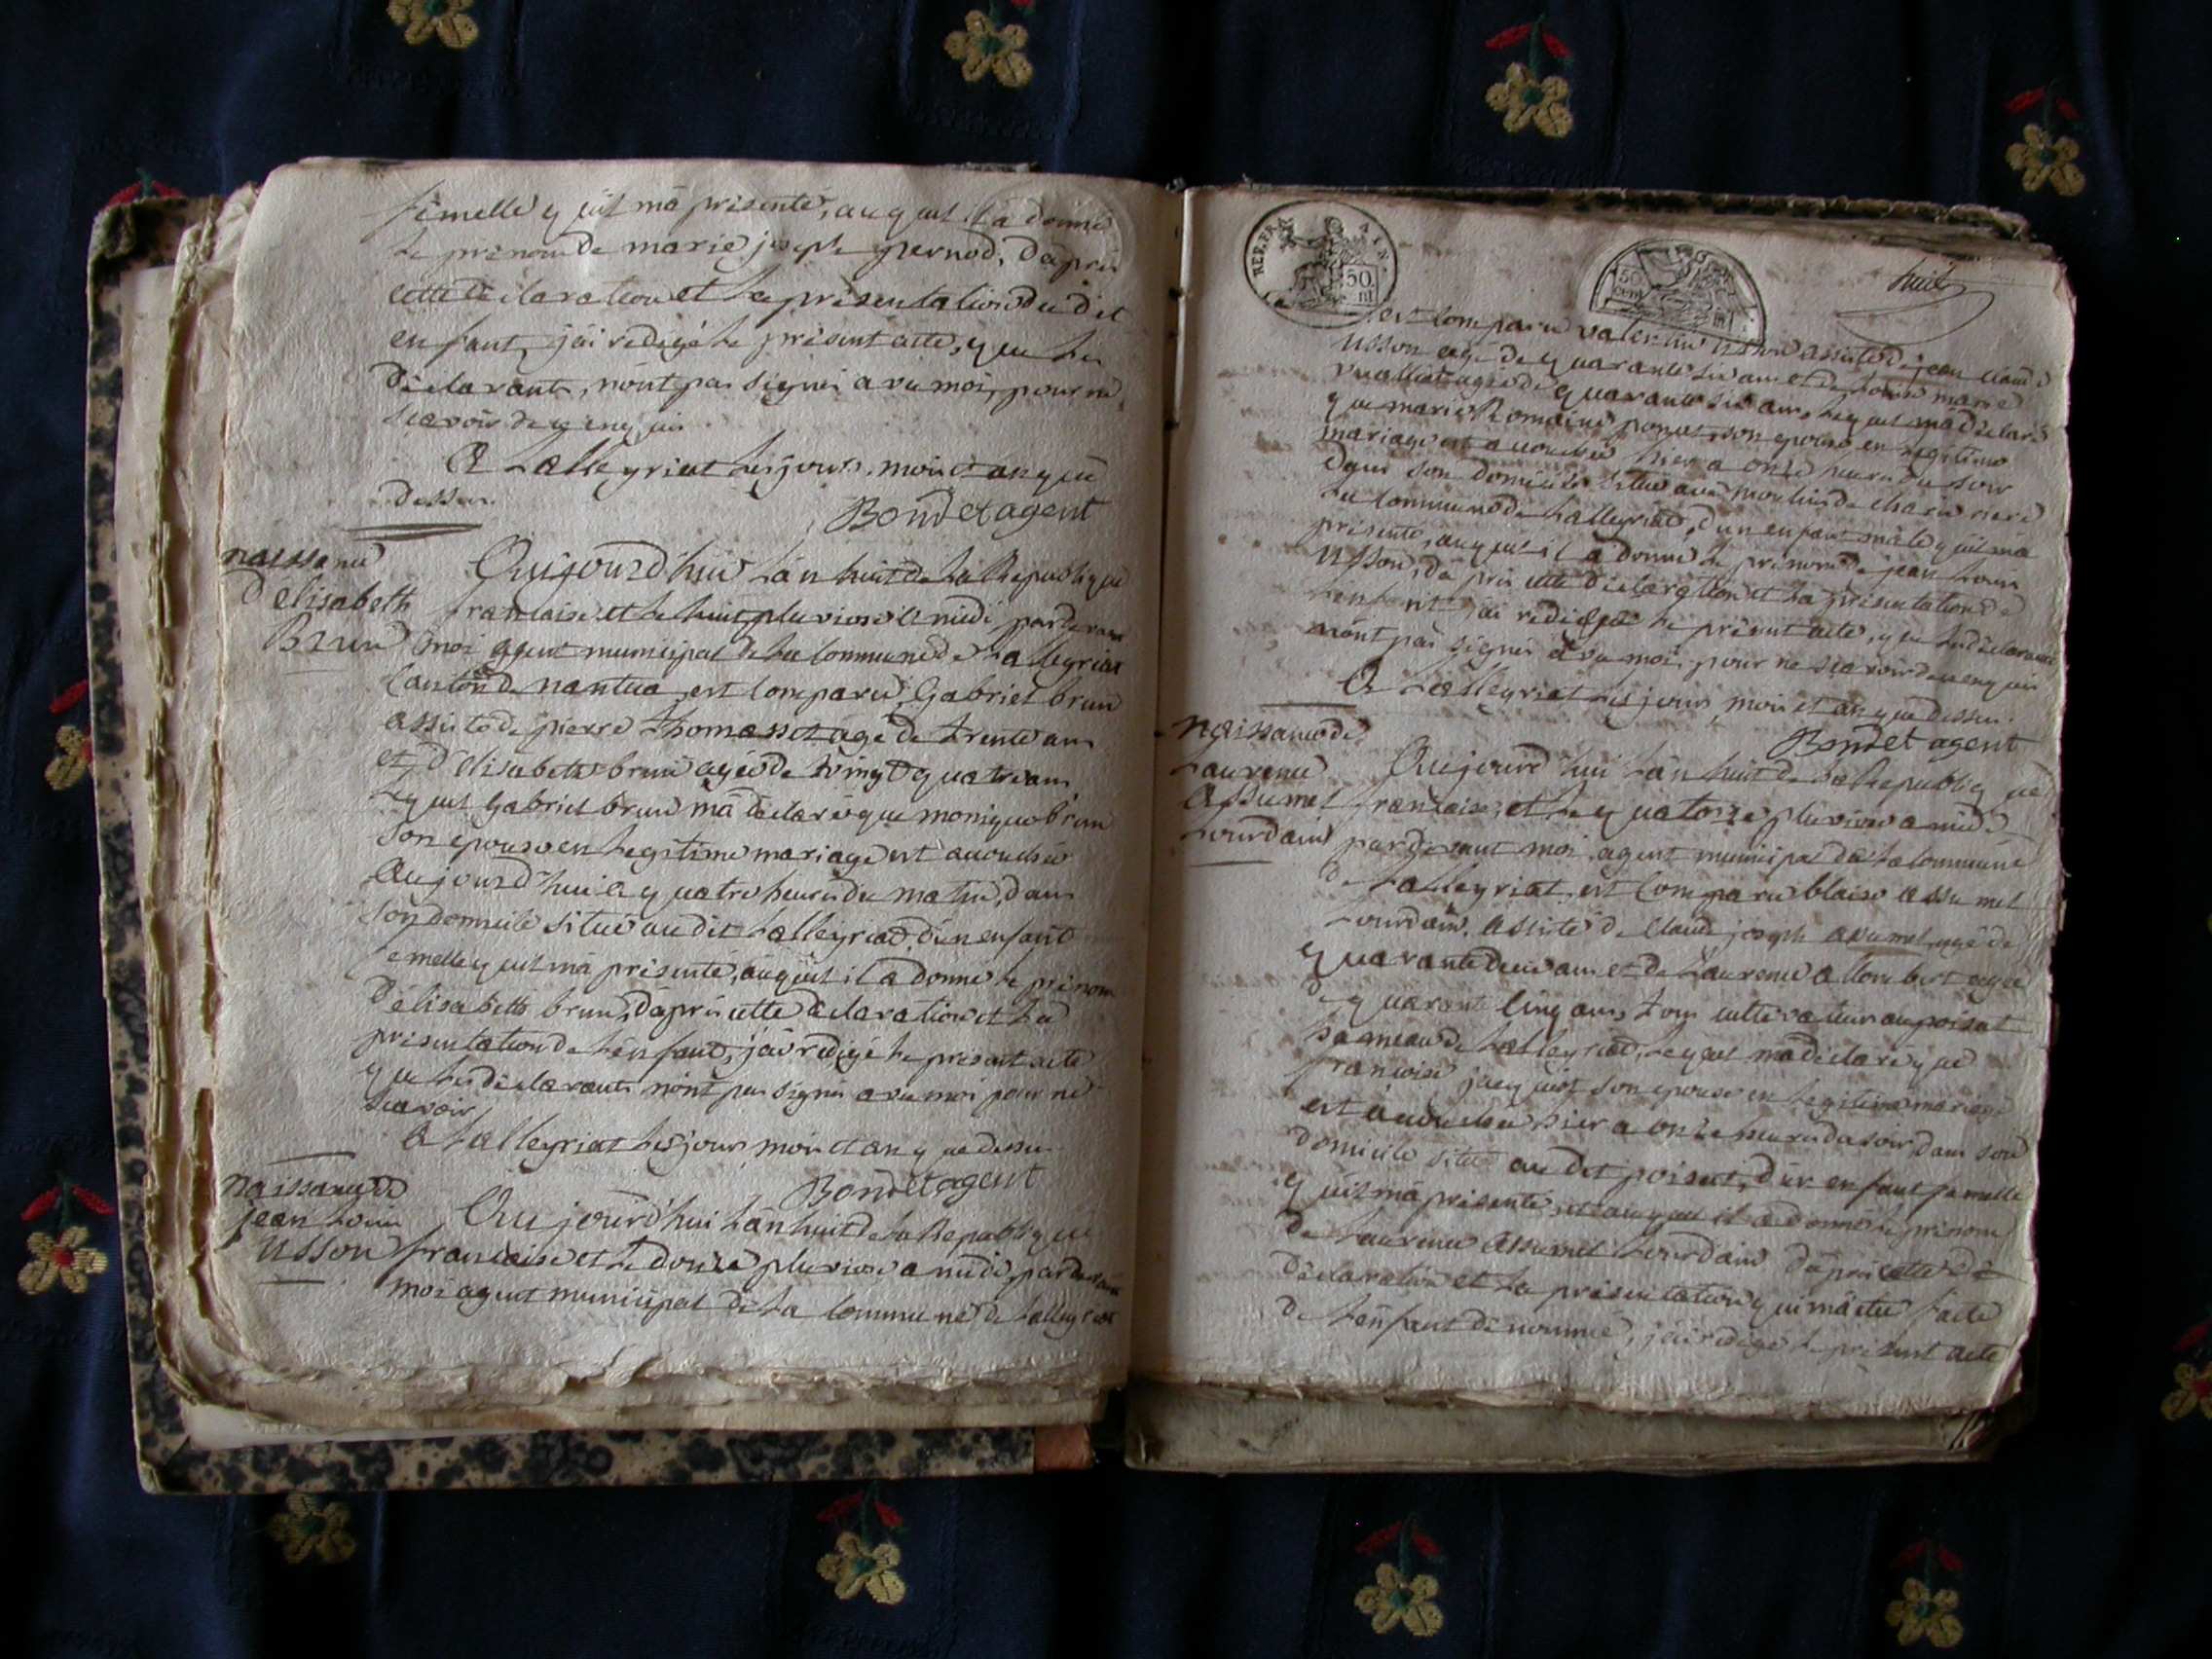 femelle quil mà présenté, auquel il a donné
le prénom de marie josephe pernod, dàprès
cette déclaration et la présentation du dit
enfant, jài redigé le présent acte, que les
déclarants, nònt pas signés avec moi, pour ne
scavoir de ce enquis
A Lalleyriat les jours, mois et an que
dessus.
Bondet agent
naissance
d'élisabeth
Brun
Aujourd'hui làn huit de la Republique
francaise et le huit pluviose a midi, pardevant
moi agent municipal de la commune de Lalleyriat
Canton de nantua, est comparu, Gabriel brun
assisté de pierre thomasset agé de trente ans
et d'élisabeth brun agée de vingt quatre ans
lequel Gabriel brun mà déclaré que monique brun
son epouse en legitime mariage est accouchée
Aujourd'hui a quatre heures du matin, dans
son domicile situé au dit Lalleyriat, dùn enfant
femelle quil mà présenté, auquel il a donné le prénom
d'élisabeth brun, dàprès cette déclaration et la
présentation de lènfant, jài redigé le présent acte
que les déclarants nònt pas signés avec moi pour ne
scavoir
A Lalleyriat les jour mois et an que dessus
Bondet agent
naissance de
jean Louis
Usson
Aujourd'hui làn huit de la Republique
francaise et le douze pluviose a midi, pardevant
moi agent municipal de la commune de Lalleyriat
REP. FRA. AIN.
50
huit
est comparu valentin usson assisté de jean claude
Usson agé de quarante six ans et de Louise marie
vualliat agée de quarante six ans, lequel mà déclaré
que marie Romaine ponset son epouse en légitime
mariage est accouchée hier a onze heures du soir
dans son domicile situé aux moulins de charix riere
la commune de Lalleyriat, dùn enfant mâle quil mà
présenté, auquel il a donné le prénom de jean Louis
Usson, dàprès cette déclaration et la présentation de
lènfant jài redigé le présent acte, que les déclarants
nònt pas signés avec moi, pour ne scavoir de ce enquis
A Lalleyriat les jour, mois et an que dessus.
Bondet agent
naissance de
Laurence
Assumel
Lourdain
Aujourd'hui làn huit de la Republique
francaise, et le quatorze pluviose a midi
pardevant moi agent municipal de la commune
de Lalleyriat, est comparu blaise assumel
Lourdain, assisté de claude joseph assumel, agé de
quarante deux ans et de Laurence allombert agée
de quarante cinq ans, tous cultivateurs au poisat
hameau de Lalleyriat, lequel mà déclaré que
françoise jacquiot son epouse en legitime mariage
est accouchée hier a onze heures du soir, dans son
domicile situé au dit poisat, dùn enfant femelle
quil mà présenté, et auquel il a donné le prénom
de Laurence assumel Lourdain dàprès cette dé
déclaration et la présentation qui mà eté faite
de lènfant dénommé, jài redigé le présent acte